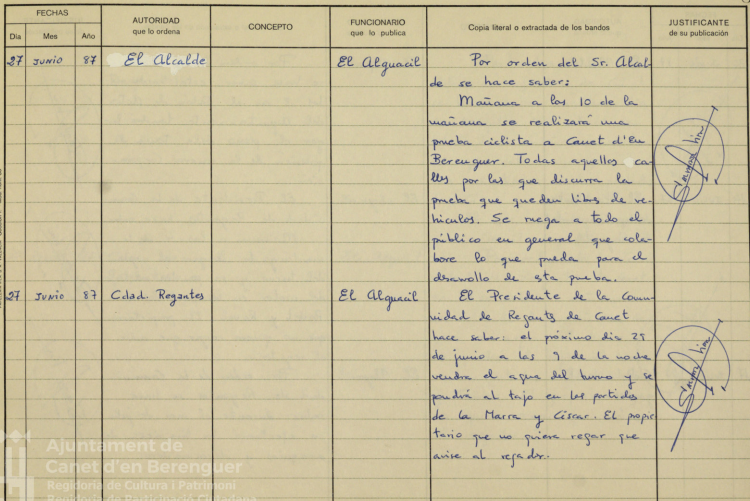 FECHAS
AUTORIDAD
que lo ordena
CONCEPTO
FUNCIONARIO
que lo publica
Copia literal o extractada de los bandos
JUSTIFICANTE
de su publicación
Día Mes Año
27 JUNIO 87 El Alcalde El Alguacil Por orden del Sr. Alcal-
de se hace saber:
Mañana a las 10 de la
mañana se realizará una
prueba ciclista a Canet d'En
Berenguer. Todas aquellos ca-
lles por las que discurra la
prueba que queden libres de ve-
hiculos. Se ruega a todo el
público en general que cola-
bore lo que pueda para el
desarrollo de esta prueba.
27 JUNIO 87 Cdad. Regantes El Alguacil El Presidente de la Comu-
nidad de Regants de Canet
hace saber: el próximo dia 29
de junio a las 9 de la noche
vendra el agua del turno y se
pondrá al tajo en las partidas
de la Marra y Ciscar. El propie-
tario que no quiera regar que
avise al regador.
Ajuntament de
Canet d'en Berenguer
Regidoria de Cultura i Patrimoni
Regidoria de Participació Ciutadana